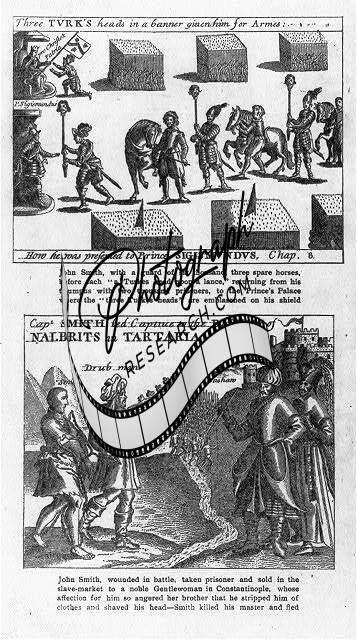 Three TVRK'S heads in a banner giuen him for Armes:
P. Sigismundus
How he was presented to Prince SIGISMVNDVS, Chap. 8.
John Smith, with a guard of three spare horses,
before each a Turkes lance, returning from his
with two prisoners, to the Prince's Palace
where the "three Turkes heads" are emblasoned on his shield
Photograph
RESEARCH.COM
Capt. SMITH led Captiue to the of
NALBRITS in TARTARIA
Drub-man
Smith
Bashaw
John Smith, wounded in battle, taken prisoner and sold in the
slave-market to a noble Gentlewoman in Constantinople, whose
affection for him so angered her brother that he stripped him of
clothes and shaved his head—Smith killed his master and fled